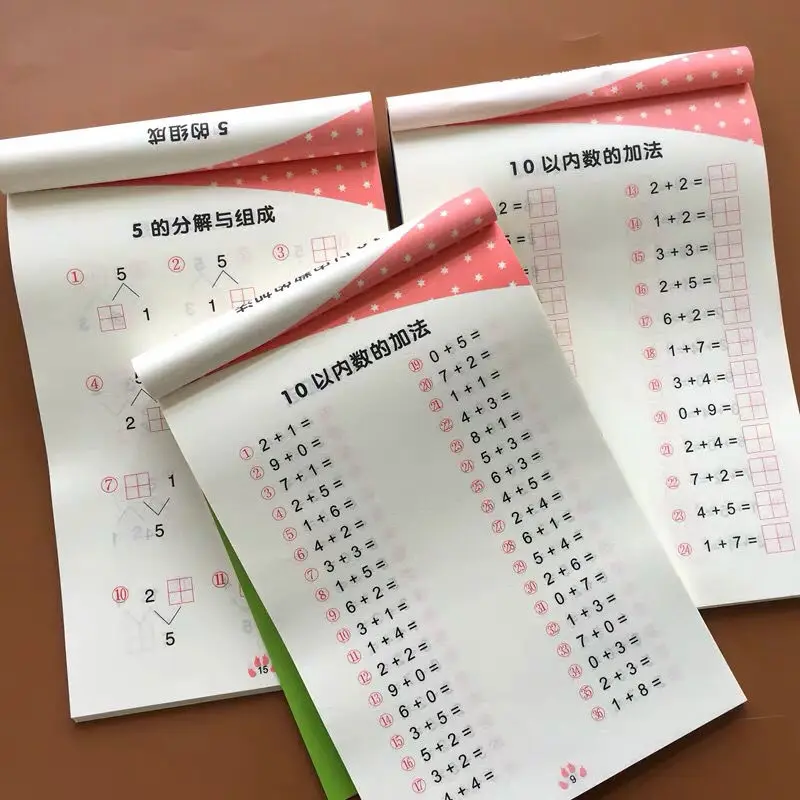 5 的组成
5 的分解与组成
① 5
1
② 5
1
③
④
2
⑦ 1
5
⑩ 2
5
⑪
15
10 以内数的加法
2 =
⑬ 2 + 2 =
⑭ 1 + 2 =
⑮ 3 + 3 =
⑯ 2 + 5 =
⑰ 6 + 2 =
⑱ 1 + 7 =
⑲ 3 + 4 =
⑳ 0 + 9 =
㉑ 2 + 4 =
㉒ 7 + 2 =
㉓ 4 + 5 =
㉔ 1 + 7 =
10 以内数的加法
① 2 + 1 =
② 9 + 0 =
③ 7 + 1 =
④ 2 + 5 =
⑤ 1 + 6 =
⑥ 4 + 2 =
⑦ 3 + 3 =
⑧ 1 + 5 =
⑨ 6 + 2 =
⑩ 3 + 1 =
⑪ 1 + 4 =
⑫ 2 + 2 =
⑬ 9 + 0 =
⑭ 6 + 0 =
⑮ 3 + 5 =
⑯ 5 + 2 =
⑰ 3 + 2 =
4 + 4 =
⑲ 0 + 5 =
⑳ 7 + 2 =
㉑ 1 + 1 =
㉒ 4 + 3 =
㉓ 8 + 1 =
㉔ 5 + 3 =
㉕ 6 + 3 =
㉖ 4 + 5 =
㉗ 2 + 4 =
㉘ 6 + 1 =
㉙ 5 + 4 =
㉚ 2 + 6 =
㉛ 0 + 7 =
㉜ 1 + 3 =
㉝ 7 + 0 =
㉞ 0 + 3 =
㉟ 2 + 3 =
㊱ 1 + 8 =
9